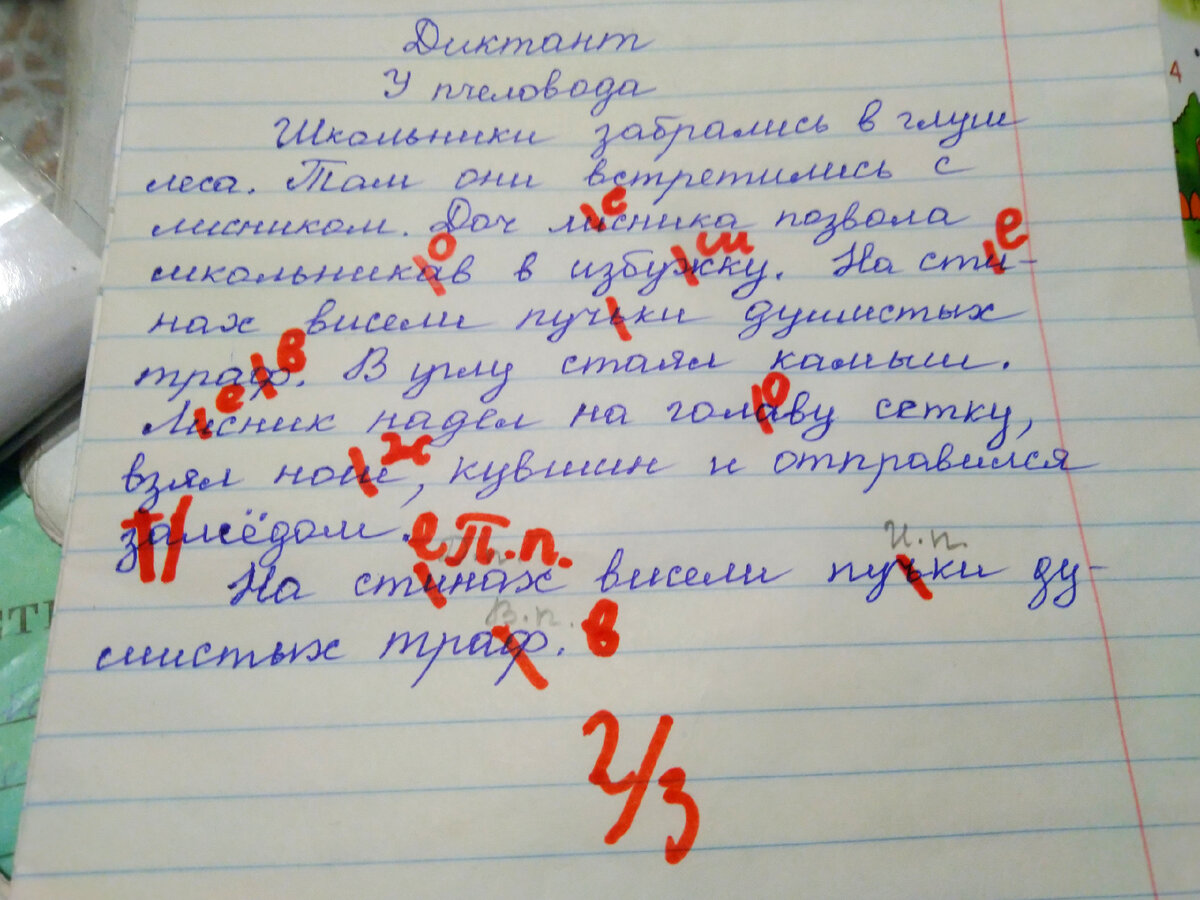 Диктант
У пчеловода
Школьники забрались в глуш
леса. Там они встретились с
лисником. Доч лисника позвола
школьникав в избужку. На сти-
нах висели пучьки душистых
траф. В углу стаял камыш.
Лисник надел на галаву сетку,
взял нош, кувшин и отправился
замёдом.
На стинах висели пучьки ду-
шистых траф.
е
о
ш
е
в
е
о
ж
е П.п.
И.п.
В.п.
в
2/3
4